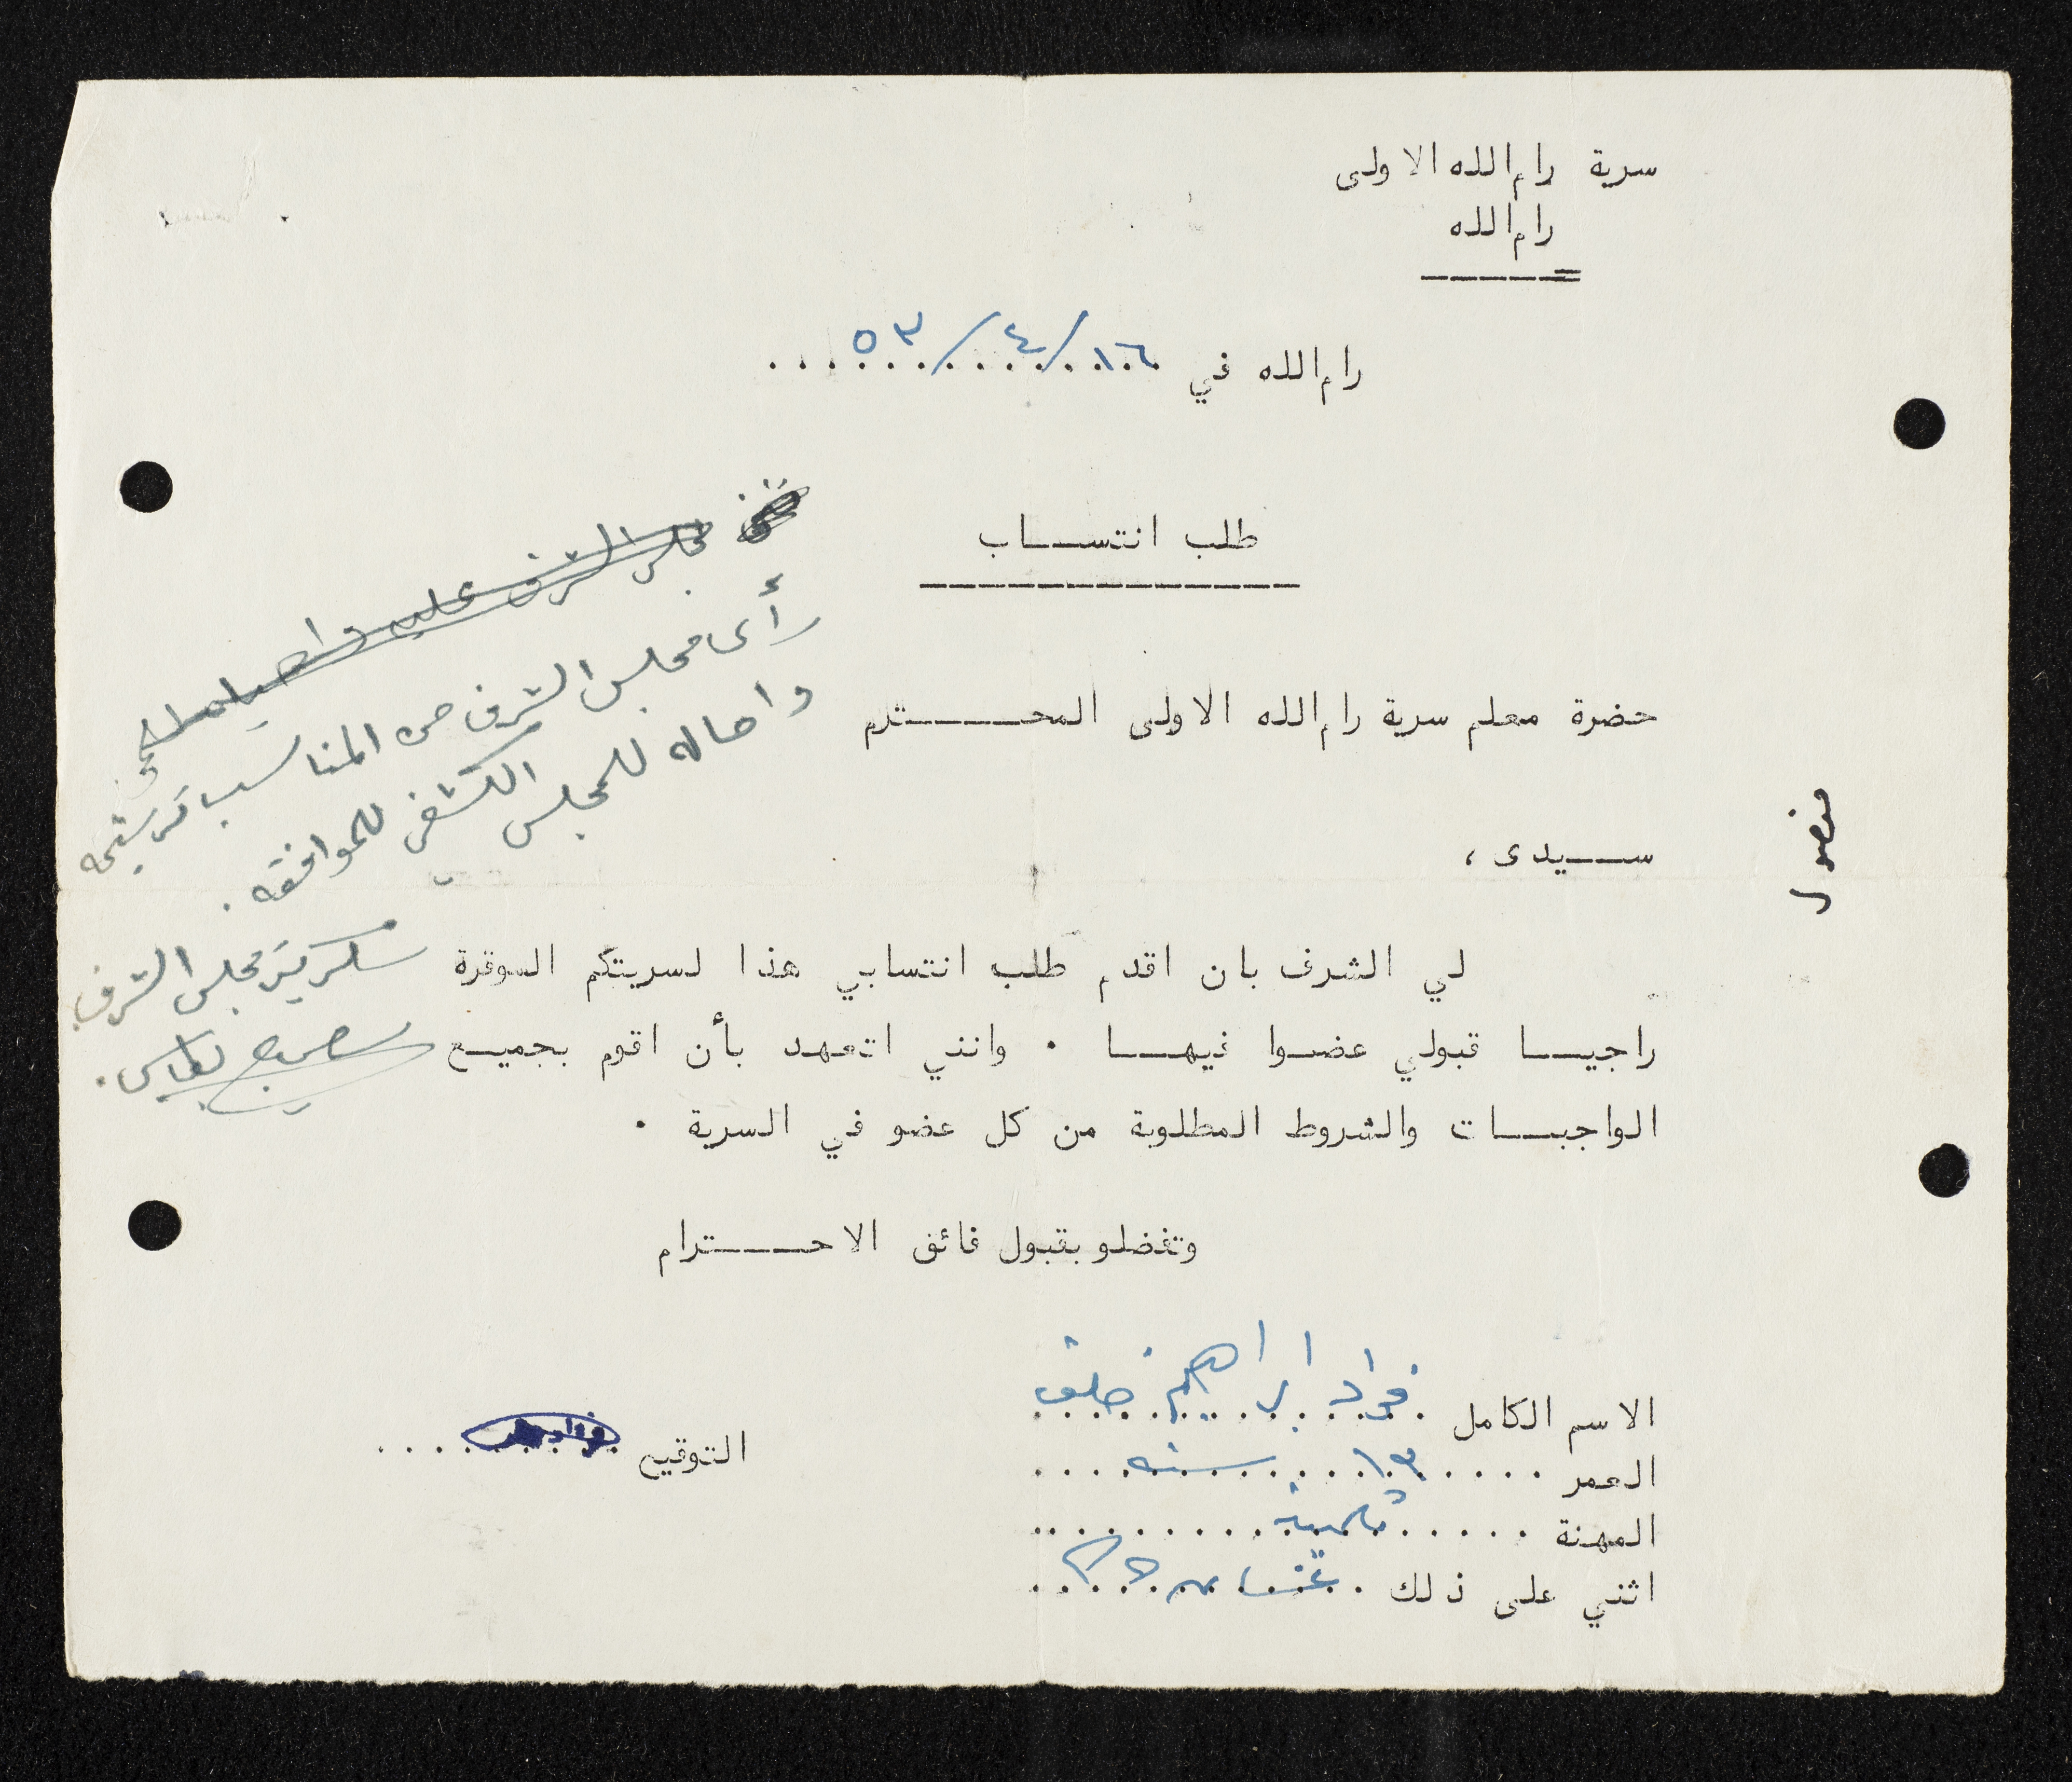 سرية رام الله الاولى
رام الله
رام الله في ١٦/٤/٥٣
طلب انتساب
حضرة معلم سرية رام الله الاولى المحترم
سيدى ،
لي الشرف بان اقدم طلب انتسابي هذا لسريتكم الموقرة
راجيا قبولي عضوا فيها . وانني اتعهد بأن اقوم بجميع
الواجبات والشروط المطلوبة من كل عضو في السرية .
وتفضلو بقبول فائق الاحترام
الاسم الكامل فؤاد ابراهيم خلف
العمر ١٣ سنه
المهنة
اثني على ذلك
التوقيع
مجلس الشرف عليه
رأى مجلس الشرف من المناسب ترشيحه
واحاله للمجلس الكشفي للموافقه .
سكرتير مجلس الشرف